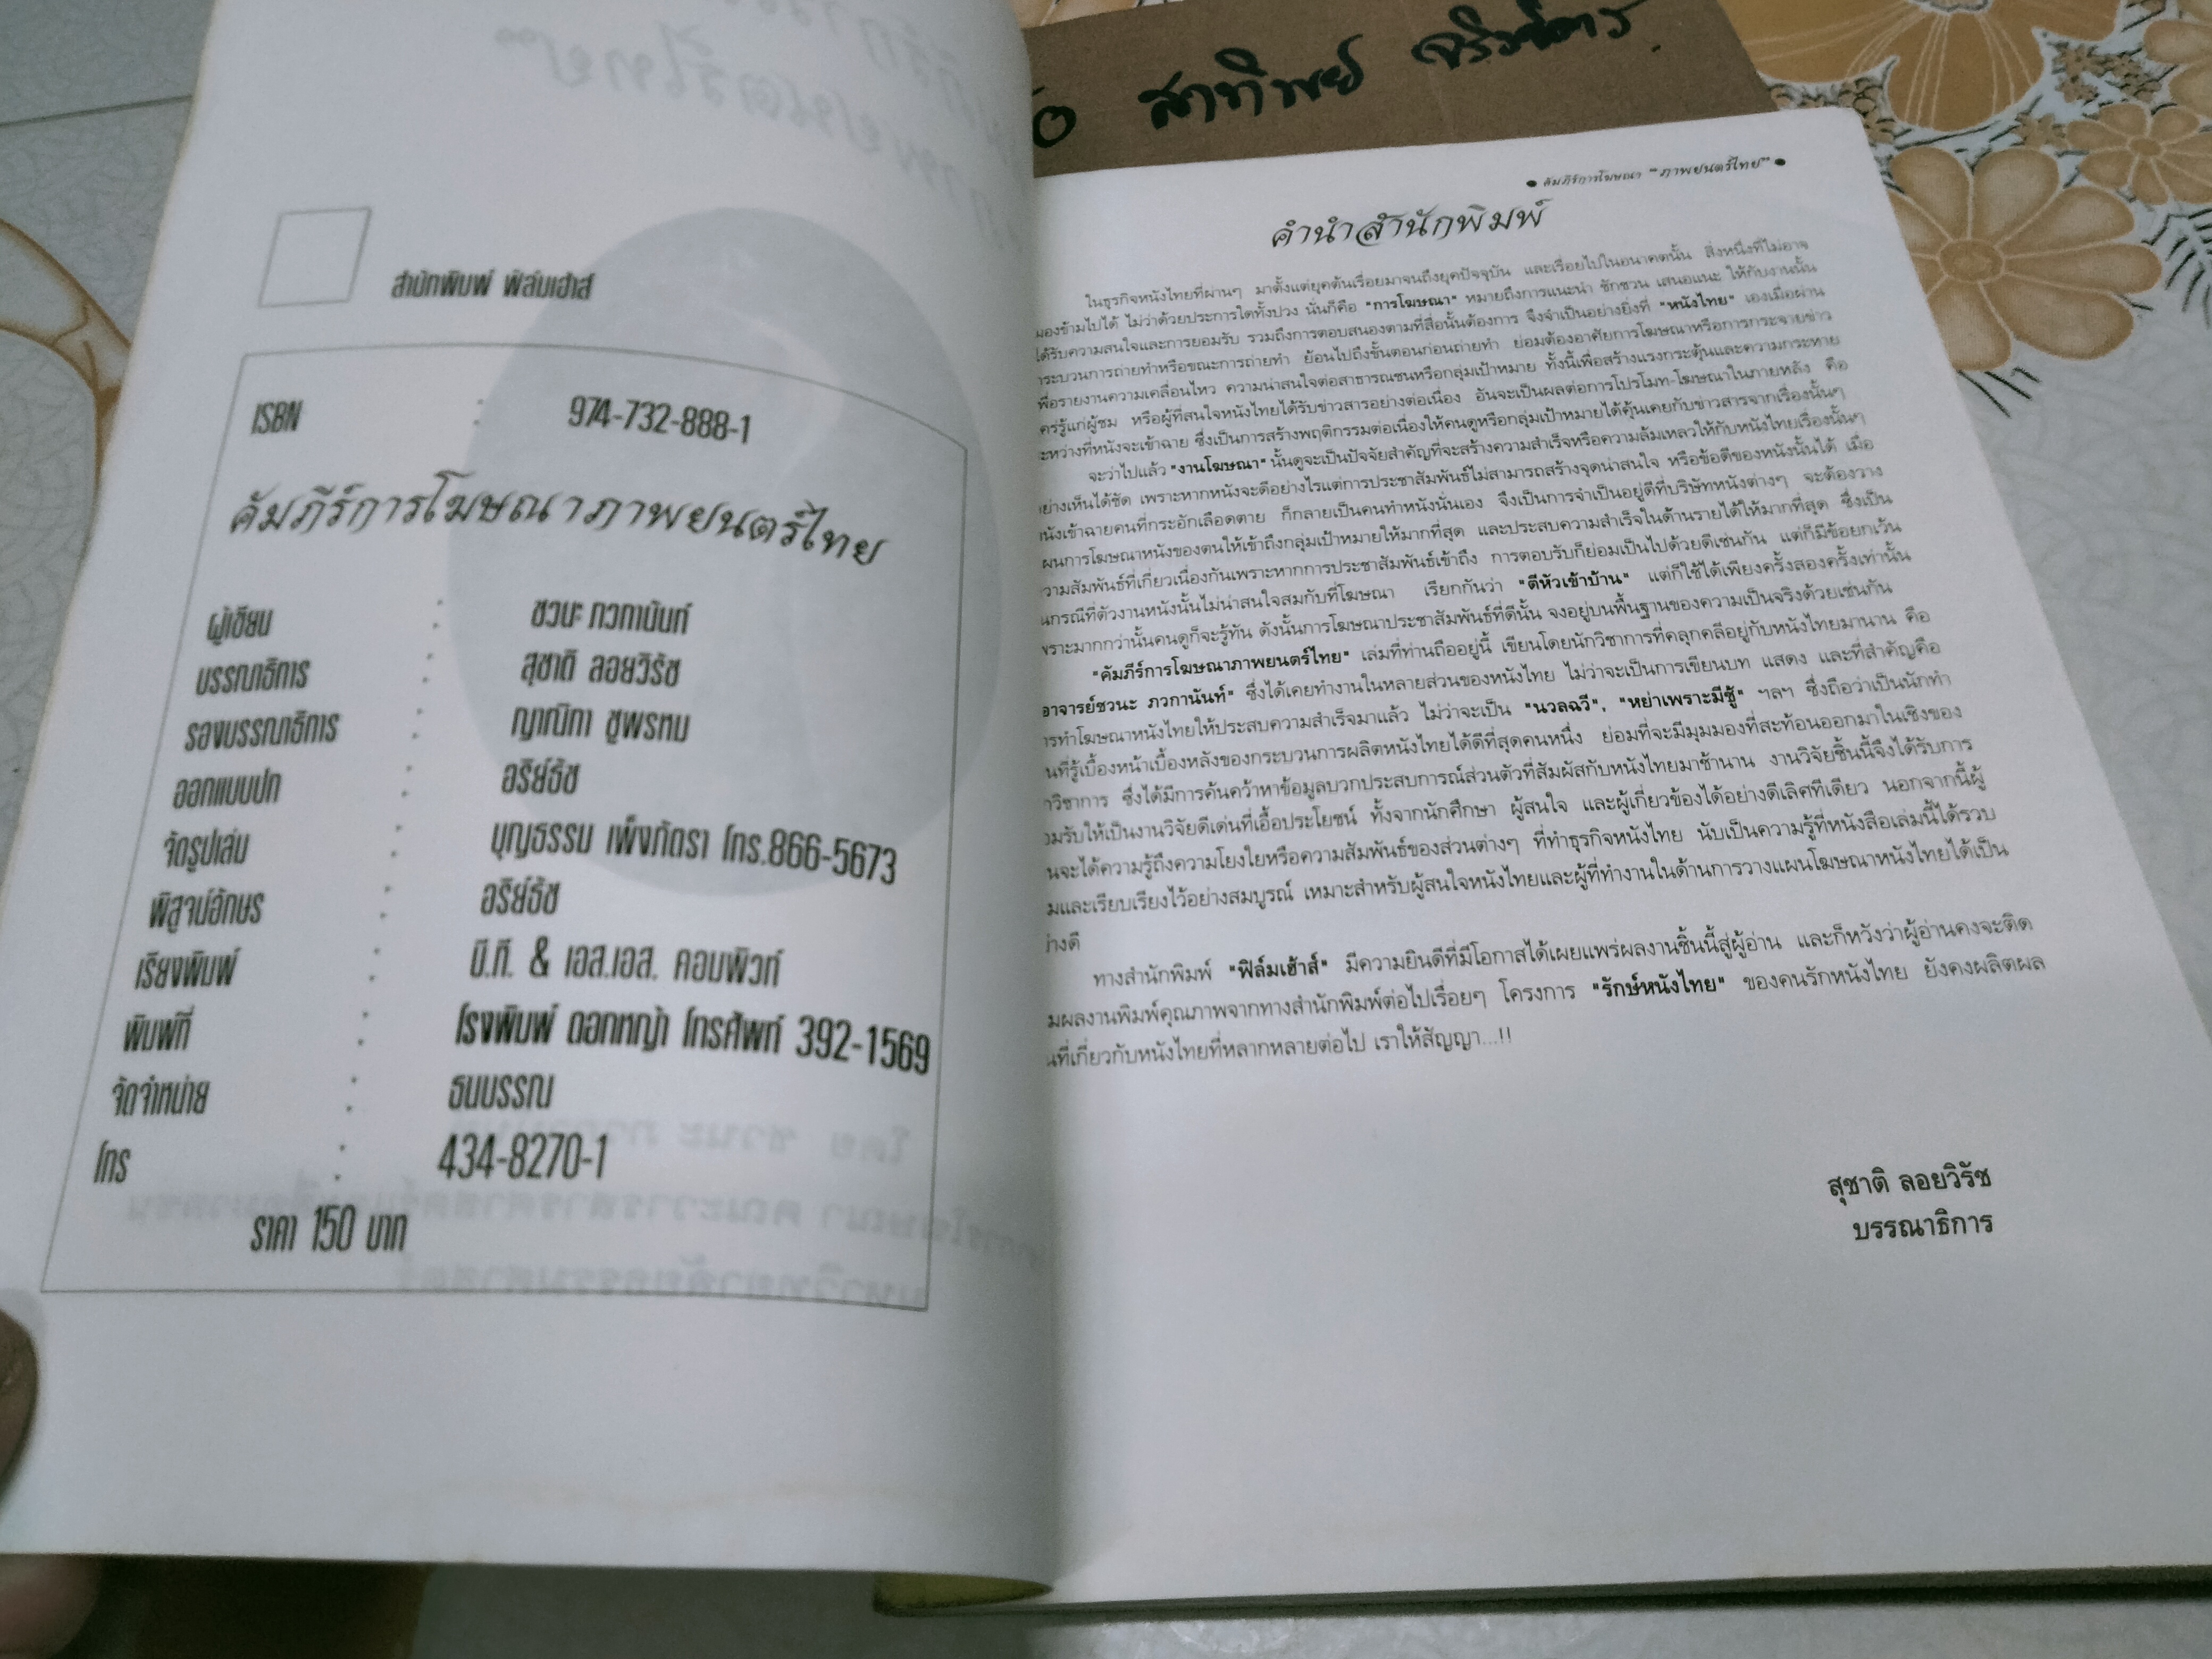 สำนักพิมพ์ ฟิล์มเฮ้าส์
ISBN : 974-732-888-1
คัมภีร์การโฆษณาภาพยนตร์ไทย
ผู้เขียน : ชวนะ ภวกานันท์
บรรณาธิการ : สุชาติ ลอยวิรัช
รองบรรณาธิการ : ญาณิกา ชูพรหม
ออกแบบปก : อริย์ธัช
จัดรูปเล่ม : บุญธรรม เพ็งภัตรา โทร.866-5673
พิสูจน์อักษร : อริย์ธัช
เรียงพิมพ์ : บี.ที. & เอส.เอส. คอมพิวท์
พิมพ์ที่ : โรงพิมพ์ ดอกหญ้า โทรศัพท์ 392-1569
จัดจำหน่าย : ธนบรรณ
โทร : 434-8270-1
ราคา 150 บาท
สาทิพย์
• คัมภีร์การโฆษณา "ภาพยนตร์ไทย" •
คำนำสำนักพิมพ์
ในธุรกิจหนังไทยที่ผ่านๆ มาตั้งแต่ยุคต้นเรื่อยมาจนถึงยุคปัจจุบัน และเรื่อยไปในอนาคตนั้น สิ่งหนึ่งที่ไม่อาจ
มองข้ามไปได้ ไม่ว่าด้วยประการใดทั้งปวง นั่นก็คือ "การโฆษณา" หมายถึงการแนะนำ ชักชวน เสนอแนะ ให้กับงานนั้น
ได้รับความสนใจและการยอมรับ รวมถึงการตอบสนองตามที่สื่อนั้นต้องการ จึงจำเป็นอย่างยิ่งที่ "หนังไทย" เองเมื่อผ่าน
กระบวนการถ่ายทำหรือขณะการถ่ายทำ ย้อนไปถึงขั้นตอนก่อนถ่ายทำ ย่อมต้องอาศัยการโฆษณาหรือการกระจายข่าว
เพื่อรายงานความเคลื่อนไหว ความน่าสนใจต่อสาธารณชนหรือกลุ่มเป้าหมาย ทั้งนี้เพื่อสร้างแรงกระตุ้นและความกระหาย
ใคร่รู้แก่ผู้ชม หรือผู้ที่สนใจหนังไทยได้รับข่าวสารอย่างต่อเนื่อง อันจะเป็นผลต่อการโปรโมท-โฆษณาในภายหลัง คือ
ระหว่างที่หนังจะเข้าฉาย ซึ่งเป็นการสร้างพฤติกรรมต่อเนื่องให้คนดูหรือกลุ่มเป้าหมายได้คุ้นเคยกับข่าวสารจากเรื่องนั้นๆ
จะว่าไปแล้ว "งานโฆษณา" นั้นดูจะเป็นปัจจัยสำคัญที่จะสร้างความสำเร็จหรือความล้มเหลวให้กับหนังไทยเรื่องนั้นๆ
อย่างเห็นได้ชัด เพราะหากหนังจะดีอย่างไรแต่การประชาสัมพันธ์ไม่สามารถสร้างจุดน่าสนใจ หรือข้อดีของหนังนั้นได้ เมื่อ
หนังเข้าฉายคนที่กระอักเลือดตาย ก็กลายเป็นคนทำหนังนั่นเอง จึงเป็นการจำเป็นอยู่ดีที่บริษัทหนังต่างๆ จะต้องวาง
แผนการโฆษณาหนังของตนให้เข้าถึงกลุ่มเป้าหมายให้มากที่สุด และประสบความสำเร็จในด้านรายได้ให้มากที่สุด ซึ่งเป็น
ความสัมพันธ์ที่เกี่ยวเนื่องกันเพราะหากการประชาสัมพันธ์เข้าถึง การตอบรับก็ย่อมเป็นไปด้วยดีเช่นกัน แต่ก็มีข้อยกเว้น
ในกรณีที่ตัวงานหนังนั้นไม่น่าสนใจสมกับที่โฆษณา เรียกกันว่า "ตีหัวเข้าบ้าน" แต่ก็ใช้ได้เพียงครั้งสองครั้งเท่านั้น
เพราะมากกว่านั้นคนดูก็จะรู้ทัน ดังนั้นการโฆษณาประชาสัมพันธ์ที่ดีนั้น จงอยู่บนพื้นฐานของความเป็นจริงด้วยเช่นกัน
"คัมภีร์การโฆษณาภาพยนตร์ไทย" เล่มที่ท่านถืออยู่นี้ เขียนโดยนักวิชาการที่คลุกคลีอยู่กับหนังไทยมานาน คือ
อาจารย์ชวนะ ภวกานันท์" ซึ่งได้เคยทำงานในหลายส่วนของหนังไทย ไม่ว่าจะเป็นการเขียนบท แสดง และที่สำคัญคือ
การทำโฆษณาหนังไทยให้ประสบความสำเร็จมาแล้ว ไม่ว่าจะเป็น "นวลฉวี", "หย่าเพราะมีชู้" ฯลฯ ซึ่งถือว่าเป็นนักทำ
นที่รู้เบื้องหน้าเบื้องหลังของกระบวนการผลิตหนังไทยได้ดีที่สุดคนหนึ่ง ย่อมที่จะมีมุมมองที่สะท้อนออกมาในเชิงของ
กวิชาการ ซึ่งได้มีการค้นคว้าหาข้อมูลบวกประสบการณ์ส่วนตัวที่สัมผัสกับหนังไทยมาช้านาน งานวิจัยชิ้นนี้จึงได้รับการ
อมรับให้เป็นงานวิจัยดีเด่นที่เอื้อประโยชน์ ทั้งจากนักศึกษา ผู้สนใจ และผู้เกี่ยวข้องได้อย่างดีเลิศทีเดียว นอกจากนี้ผู้
นจะได้ความรู้ถึงความโยงใยหรือความสัมพันธ์ของส่วนต่างๆ ที่ทำธุรกิจหนังไทย นับเป็นความรู้ที่หนังสือเล่มนี้ได้รวบ
มและเรียบเรียงไว้อย่างสมบูรณ์ เหมาะสำหรับผู้สนใจหนังไทยและผู้ที่ทำงานในด้านการวางแผนโฆษณาหนังไทยได้เป็น
่างดี
ทางสำนักพิมพ์ "ฟิล์มเฮ้าส์" มีความยินดีที่มีโอกาสได้เผยแพร่ผลงานชิ้นนี้สู่ผู้อ่าน และก็หวังว่าผู้อ่านคงจะติด
มผลงานพิมพ์คุณภาพจากทางสำนักพิมพ์ต่อไปเรื่อยๆ โครงการ "รักษ์หนังไทย" ของคนรักหนังไทย ยังคงผลิตผล
นที่เกี่ยวกับหนังไทยที่หลากหลายต่อไป เราให้สัญญา...!!
สุชาติ ลอยวิรัช
บรรณาธิการ